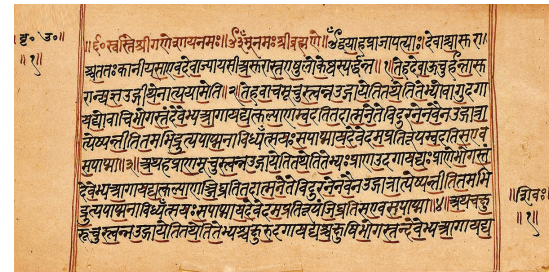 बृ॰ उ॰॥
॥१॥
॥६०॥स्वस्तिश्रीगणेशायनमः॥ॐनमःश्रीब्रह्मणे॥ॐद्वयाहप्राजापत्याःदेवाश्चासुरा
श्चततःकानीयसाएवदेवाज्यायसाअसुरास्तएषुलोकेष्वस्पर्द्धंत॥१॥तेहदेवाऊचुर्हंतासु
रान्यज्ञउद्गीथेनात्ययामेति॥२॥तेहवाचमूचुस्त्वन्नउद्गायेतितथेतितेभ्योवागुदगा
यद्योवाचिभोगस्तंदेवेभ्यआगायद्यत्कल्याणम्वदतितदात्मनेतेविदुरनेनवैनउद्गात्रा
त्येष्यन्तीतितमभिद्रुत्यपाप्मनाविध्यँत्सयःसपाप्मायदेवेदमप्रतिरूपम्वदतिसएव
सपाप्मा॥३॥अथहप्राणमूचुस्त्वन्नउद्गायेतितथेतितेभ्यःप्राणउदगायद्यःप्राणेभोगस्तं
देवेभ्यआगायद्यत्कल्याणञ्जिघ्रतितदात्मनेतेविदुरनेनवैनउद्गात्रात्येष्यन्तीतितमभि
द्रुत्यपाप्मनाविध्यँत्सयःसपाप्मायदेवेदमप्रतिरूपंजिघ्रतिसएवसपाप्मा॥४॥अथचक्षु
रूचुस्त्वन्नउद्गायेतितथेतितेभ्यश्चक्षुरुदगायद्यश्चक्षुषिभोगस्तन्देवेभ्यआगायद्य
॥शिवः॥
॥१॥